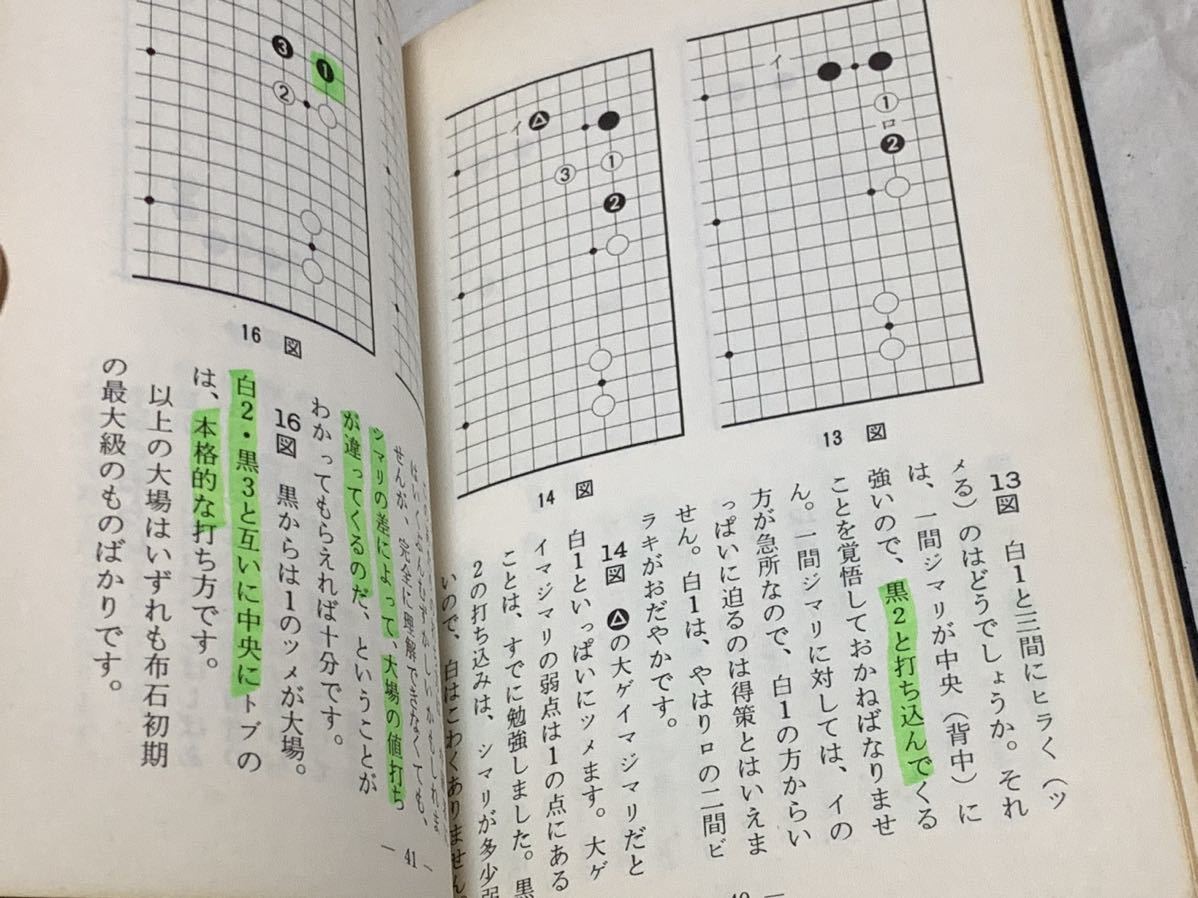 13図
13図　白1と三間にヒラく（ツ
メる）のはどうでしょうか。それ
は、一間ジマリが中央（背中）に
強いので、黒2と打ち込んでくる
ことを覚悟しておかねばなりませ
ん。一間ジマリに対しては、イの
方が急所なので、白1の方からい
っぱいに迫るのは得策とはいえま
せん。白1は、やはりロの二間ビ
ラキがおだやかです。
14図
14図　▲の大ゲイマジマリだと
白1といっぱいにツメます。大ゲ
イマジマリの弱点は1の点にある
ことは、すでに勉強しました。黒
2の打ち込みは、シマリが多少弱
いので、白はこわくありません。
はいくぶんむずかしいかもしれま
せんが、完全に理解できなくても、
シマリの差によって、大場の値打ち
が違ってくるのだ、ということが
わかってもらえれば十分です。
16図
16図　黒からは1のツメが大場。
白2・黒3と互いに中央にトブの
は、本格的な打ち方です。
以上の大場はいずれも布石初期
の最大級のものばかりです。
— 41 —
イ
1
ロ
2
イ
3
1
2
3
1
2